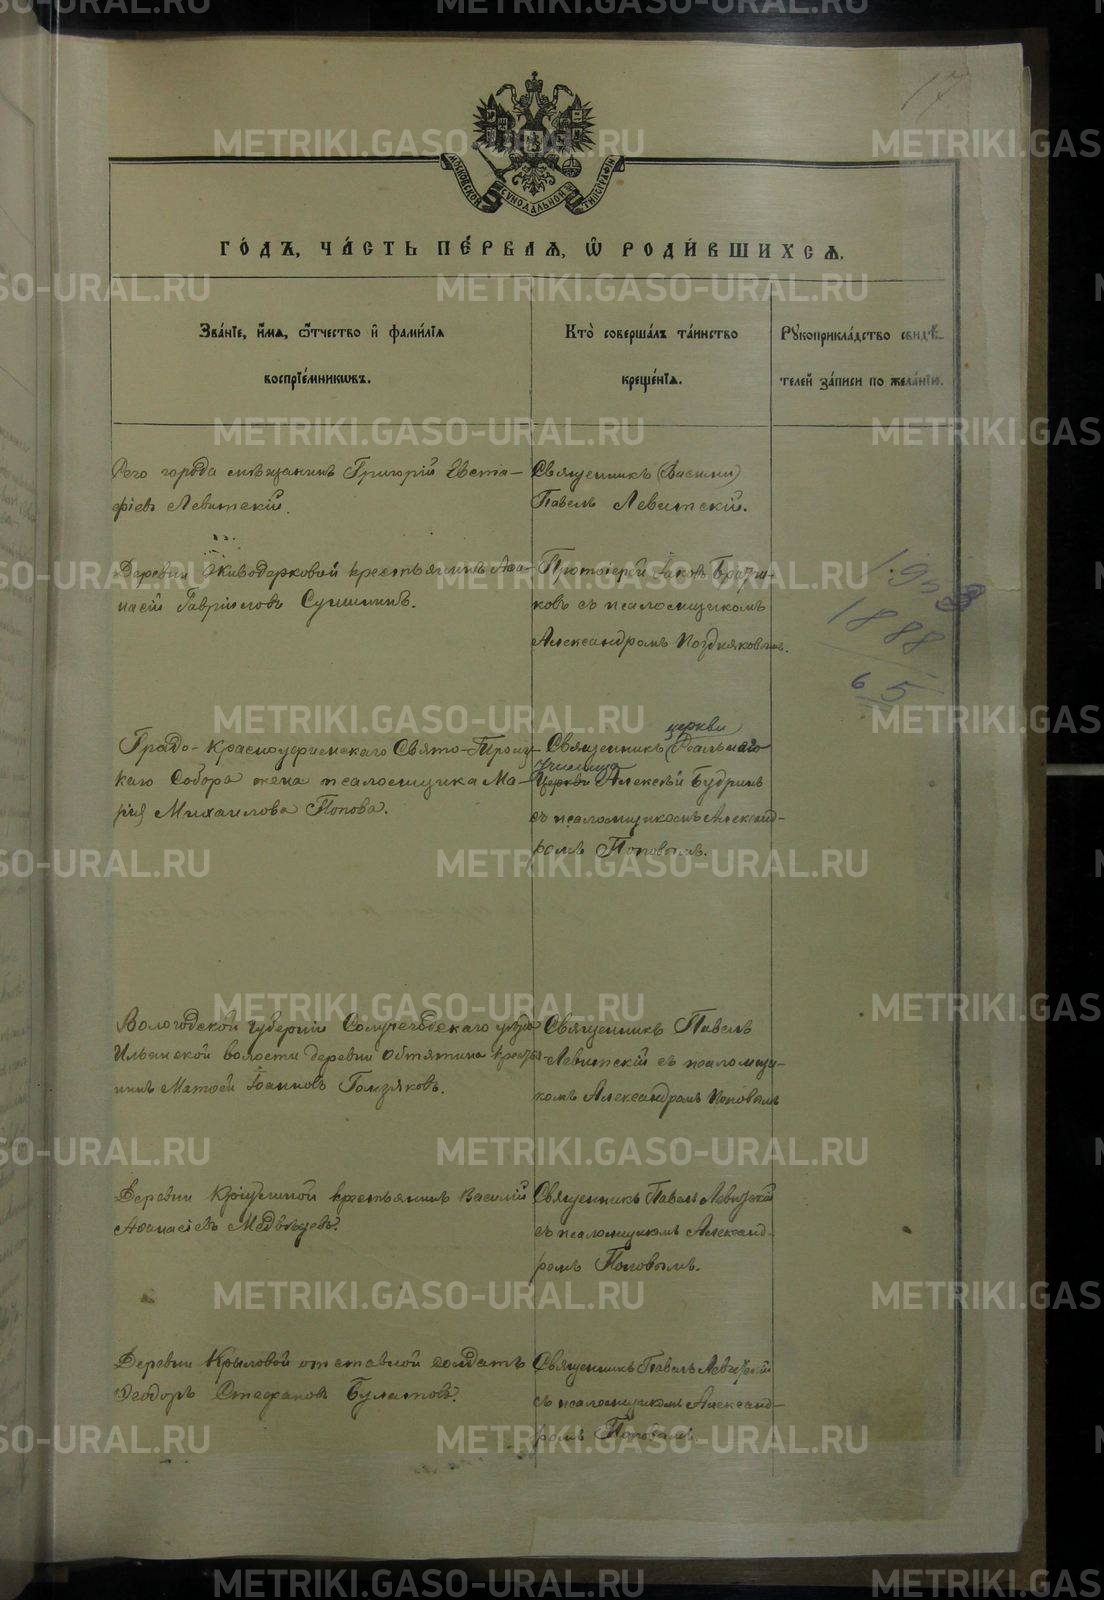 17
МОСКОВСКОЙ СѴНОДАЛЬНОЙ ТИПОГРАФІИ
ГО́ДЪ, ЧА́СТЬ ПЕ́РВАѦ, Ѡ҆ РОДИ́ВШИХСѦ.
Зва́нїе, и҆́мѧ, ѻ҆́тчество и҆ фами́лїѧ
воспрїе́мникѡвъ.
Кто̀ соверша́лъ та́инство
креще́нїѧ.
Рꙋкоприкла́дство свидѣ́-
телей за́писи по жела́нїю.
Сего города мѣщанинъ Григорій Евста-
фіевъ Левитскій.
Священникъ (Василій)
Павелъ Левитскій.
Деревни Живодерковой крестьянинъ Афа-
насій Гавріиловъ Сушинъ.
Протоіерей Іаковъ
ковъ съ псаломщикомъ
Александромъ Поздняковымъ.
1953
1888
65
Градо-Красноуфимскаго Свято-Троиц-
каго Собора жена псаломщика Ма-
рія Михаилова Попова.
церкви
Священникъ (Реальнаго
Училища
Церкви Алексѣй Будринъ
съ псаломщикомъ Александ-
ромъ Поповымъ.
Вологодской губерніи Сольвычегодскаго уѣзда
Ильинской волости деревни крестья-
нинъ Матѳей Іоанновъ Гомзяковъ.
Священникъ Павелъ
Левитскій съ псаломщи-
комъ Александромъ Поповымъ
Деревни крестьянинъ Василій
Аѳанасіевъ Медвѣдевъ.
Священникъ Павелъ Левитскій
съ псаломщикомъ Александ-
ромъ Поповымъ.
Деревни Крыловой отставной солдатъ
Ѳеодоръ Стефановъ Булатовъ.
Священникъ Павелъ Левитскій
съ псаломщикомъ Александ-
ромъ Поповымъ.
METRIKI.GASO-URAL.RU